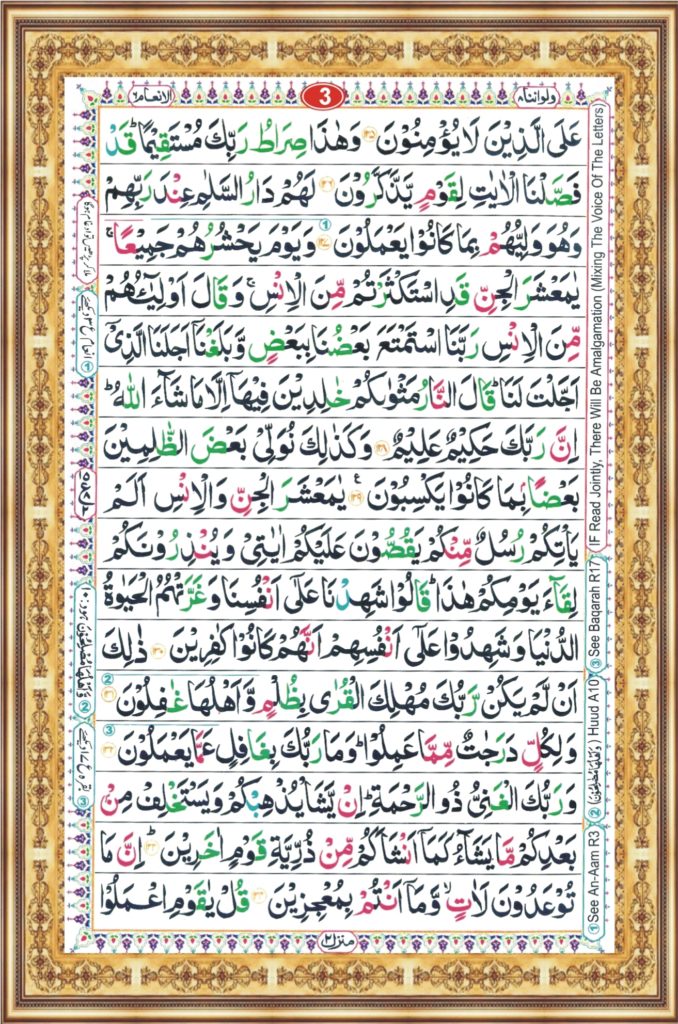 ولواننا ٨
3
الانعام ٦
عَلَى الَّذِيْنَ لَا يُؤْمِنُوْنَ ﴿١٢٥﴾ وَهٰذَا صِرَاطُ رَبِّكَ مُسْتَقِيْمًا ؕ قَدْ
فَصَّلْنَا الْاٰيٰتِ لِقَوْمٍ يَّذَّكَّرُوْنَ ﴿١٢٦﴾ لَهُمْ دَارُ السَّلٰمِ عِنْدَ رَبِّهِمْ
وَهُوَ وَلِيُّهُمْ بِمَا كَانُوْا يَعْمَلُوْنَ ﴿١٢٧﴾ وَيَوْمَ يَحْشُرُهُمْ جَمِيْعًا ۚ
يٰمَعْشَرَ الْجِنِّ قَدِ اسْتَكْثَرْتُمْ مِّنَ الْاِنْسِ ۚ وَقَالَ اَوْلِيٰٓـُٔهُمْ
مِّنَ الْاِنْسِ رَبَّنَا اسْتَمْتَعَ بَعْضُنَا بِبَعْضٍ وَّبَلَغْنَاۤ اَجَلَنَا الَّذِيْۤ
اَجَّلْتَ لَنَا ؕ قَالَ النَّارُ مَثْوٰىكُمْ خٰلِدِيْنَ فِيْهَاۤ اِلَّا مَا شَآءَ اللّٰهُ ؕ
اِنَّ رَبَّكَ حَكِيْمٌ عَلِيْمٌ ﴿١٢٨﴾ وَكَذٰلِكَ نُوَلِّيْ بَعْضَ الظّٰلِمِيْنَ
بَعْضًۢا بِمَا كَانُوْا يَكْسِبُوْنَ ﴿١٢٩﴾ يٰمَعْشَرَ الْجِنِّ وَالْاِنْسِ اَلَمْ
يَاْتِكُمْ رُسُلٌ مِّنْكُمْ يَقُصُّوْنَ عَلَيْكُمْ اٰيٰتِيْ وَيُنْذِرُوْنَكُمْ
لِقَآءَ يَوْمِكُمْ هٰذَا ؕ قَالُوْا شَهِدْنَا عَلٰۤى اَنْفُسِنَا وَغَرَّتْهُمُ الْحَيٰوةُ
الدُّنْيَا وَشَهِدُوْا عَلٰۤى اَنْفُسِهِمْ اَنَّهُمْ كَانُوْا كٰفِرِيْنَ ﴿١٣٠﴾ ذٰلِكَ
اَنْ لَّمْ يَكُنْ رَّبُّكَ مُهْلِكَ الْقُرٰى بِظُلْمٍ وَّاَهْلُهَا غٰفِلُوْنَ ﴿١٣١﴾
وَلِكُلٍّ دَرَجٰتٌ مِّمَّا عَمِلُوْا ؕ وَمَا رَبُّكَ بِغَافِلٍ عَمَّا يَعْمَلُوْنَ ﴿١٣٢﴾
وَرَبُّكَ الْغَنِيُّ ذُو الرَّحْمَةِ ؕ اِنْ يَّشَاْ يُذْهِبْكُمْ وَيَسْتَخْلِفْ مِنْۢ
بَعْدِكُمْ مَّا يَشَآءُ كَمَاۤ اَنْشَاَكُمْ مِّنْ ذُرِّيَّةِ قَوْمٍ اٰخَرِيْنَ ﴿١٣٣﴾ اِنَّ مَا
تُوْعَدُوْنَ لَاٰتٍ ۙ وَّمَاۤ اَنْتُمْ بِمُعْجِزِيْنَ ﴿١٣٤﴾ قُلْ يٰقَوْمِ اعْمَلُوْا
منزل ٢
IF Read Jointly, There Will Be Amalgamation (Mixing The Voice Of The Letters)
③ See Baqarah R17
② (وَاَهْلُهَا مُصْلِحُوْنَ) Huud A10
① See An-Aam R3
② وَاَهْلُهَا مُصْلِحُوْنَ ہود: ۱۰